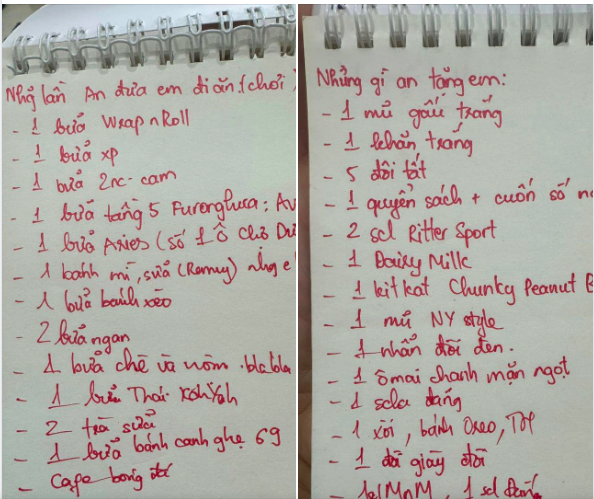 Nhg lần An đưa em đi ăn (chơi)
- 1 bữa Wrap n Roll
- 1 bữa xp
- 1 bữa 2nc - cam
- 1 bữa tầng 5
- 1 bữa Aries (số 1 ô chợ
- 1 bánh mì, sữa (Romy) nhg e
- 1 bữa bánh xèo
- 2 bữa ngan
- 1 bữa chè và nộm. blabla
- 1 bữa Thái
- 2 trà sữa
- 1 bữa bánh canh ghẹ 69
- Cafe bóng đá
Những gì an tặng em:
- 1 mũ gấu trắng
- 1 khăn trắng
- 5 đôi tất
- 1 quyển sách + cuốn sổ
- 2 scl Ritter Sport
- 1 Dairy Milk
- 1 kitkat Chunky Peanut B
- 1 mũ NY style
- 1 nhẫn đôi đen.
- 1 ômai chanh mặn ngọt
- 1 scla đắng
- 1 xôi, bánh Oreo,
- 1 đôi giày đôi
- 1 scl đắng